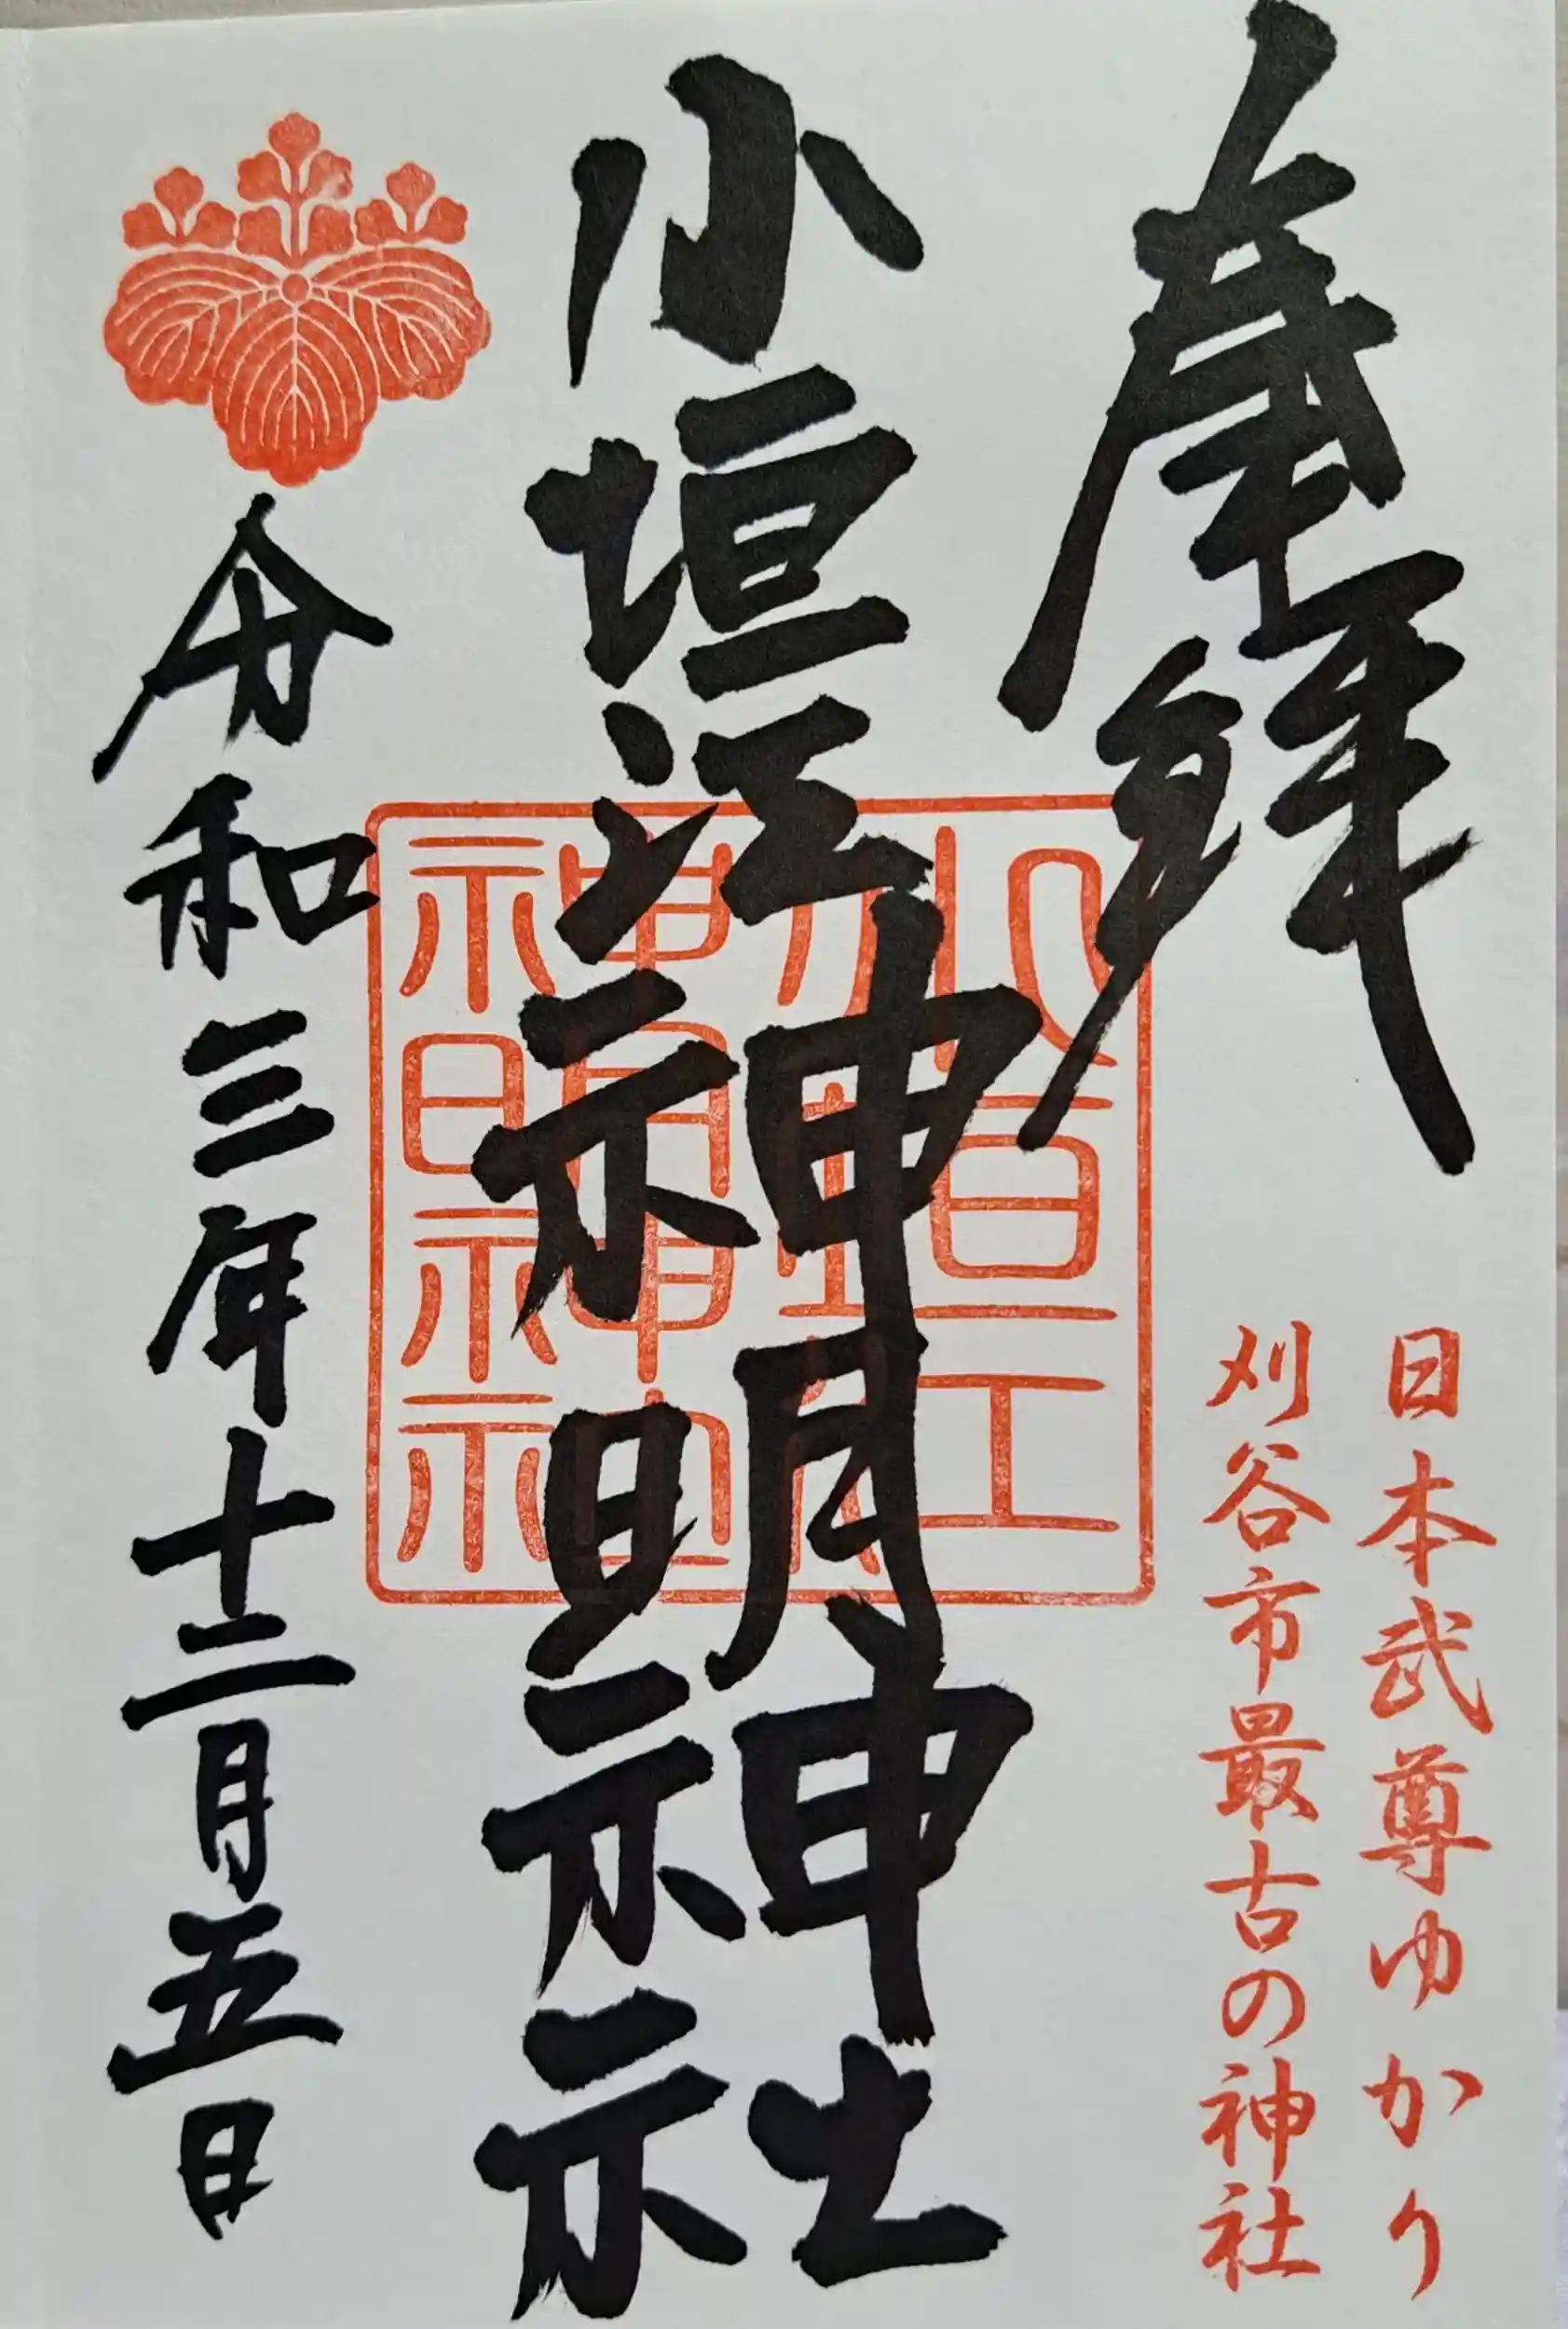 奉拝
日本武尊ゆかり
刈谷市最古の神社
小垣江神明神社
令和三年十二月五日